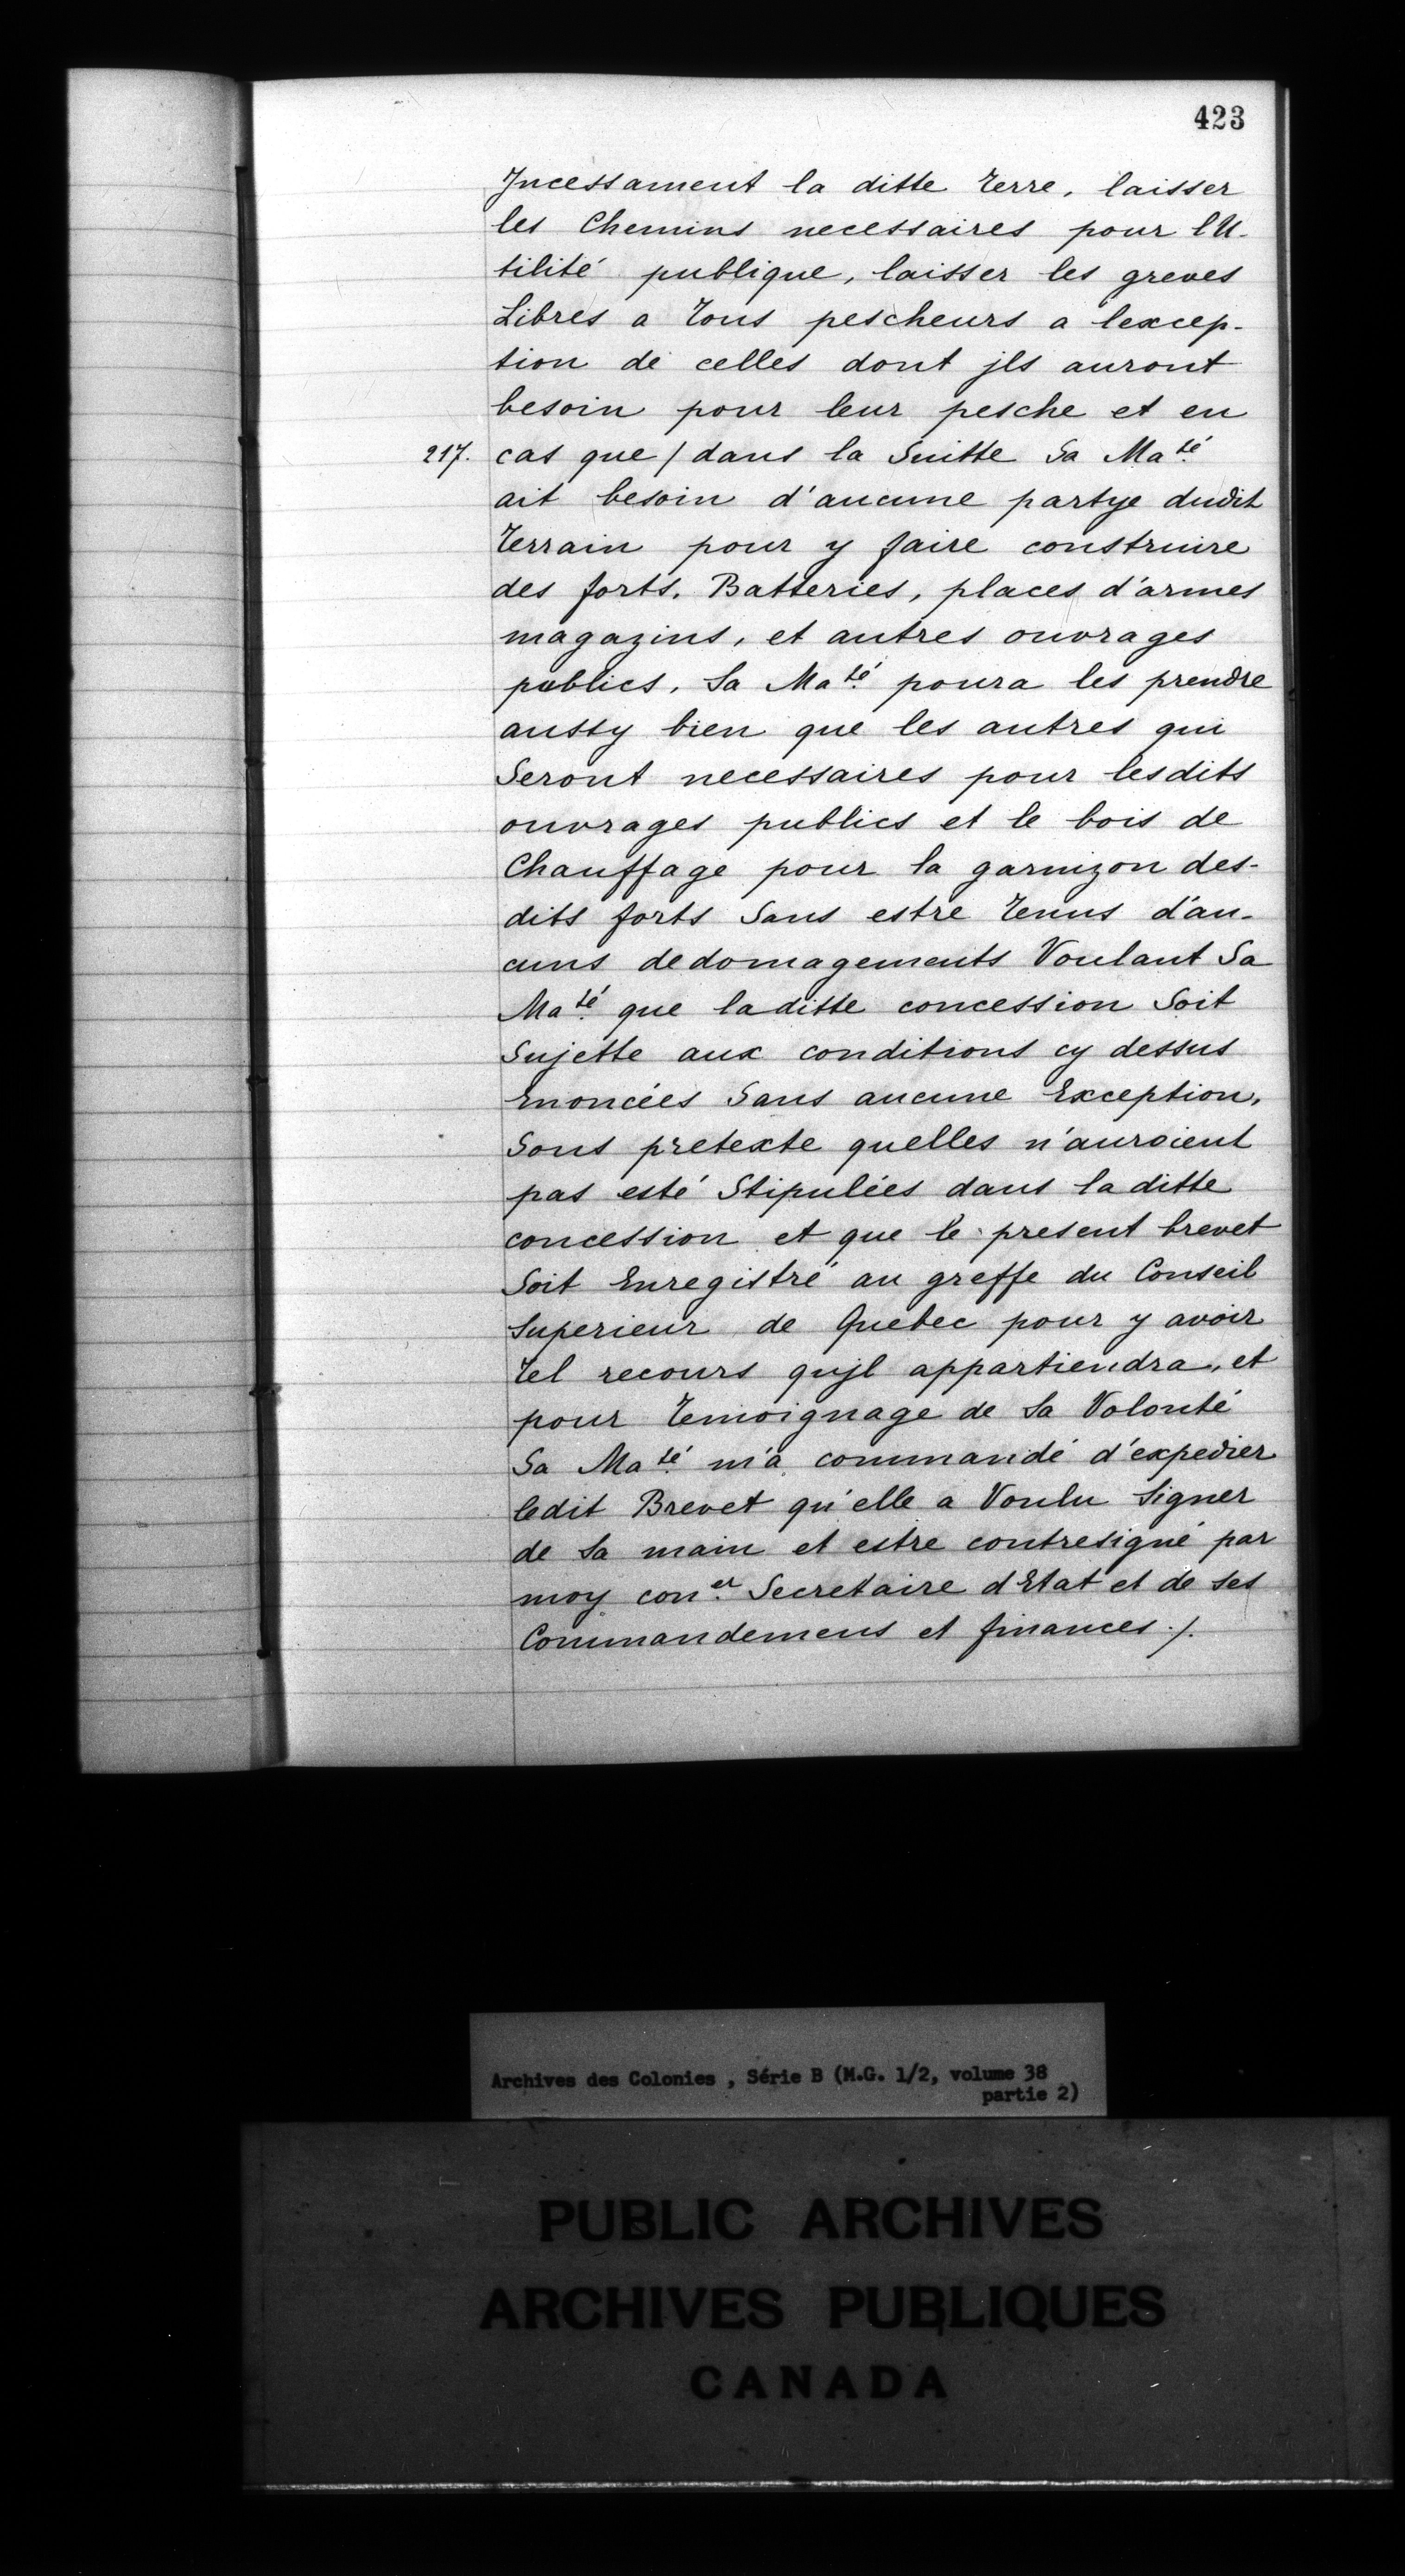 423
Incessament la ditte Terre, laisser
les Chemins necessaires pour lU-
tilité publique, laisser les greves
Libres a Tous pescheurs a lexcep-
tion de celles dont jls auront
besoin pour leur pesche et en
217. cas que / dans la Suitte Sa Maté
ait besoin d'aucune partye dudit
Terrain pour y faire construire
des forts, Batteries, places d'armes
magazins, et autres ouvrages
publics, Sa Maté poura les prendre
aussy bien que les autres qui
Seront necessaires pour lesdits
ouvrages publics et le bois de
Chauffage pour la garnizon des-
dits forts Sans estre Tenus d'au-
cuns dedomagements Voulant Sa
Maté que laditte concession Soit
Sujette aux conditions cy dessus
Enoncées Sans aucune Exception,
Sous pretexte quelles n'auroient
pas esté Stipulées dans laditte
concession et que le present brevet
Soit Enregistré au greffe du Conseil
Superieur de Quebec pour y avoir
Tel recours qujl appartiendra, et
pour Temoignage de Sa Volonté
Sa Maté m'a commandé d'expedier
ledit Brevet qu'elle a Voulu Signer
de Sa main et estre contresigné par
moy coner Secretaire dEtat et de ses
Commandemens et finances ./.
Archives des Colonies , Série B (M.G. 1/2, volume 38
partie 2)
PUBLIC ARCHIVES
ARCHIVES PUBLIQUES
CANADA